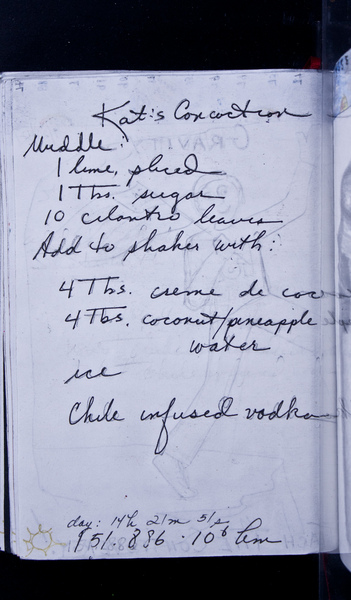 Kat's Concoction
Muddle:
1 lime, sliced
1 Tbs. sugar
10 cilantro leaves
Add to shaker with:
4 Tbs. creme de coco
4 Tbs. coconut/pineapple
water
ice
Chile infused vodka
day: 14h 21m 51s
151.886 · 10⁶ km